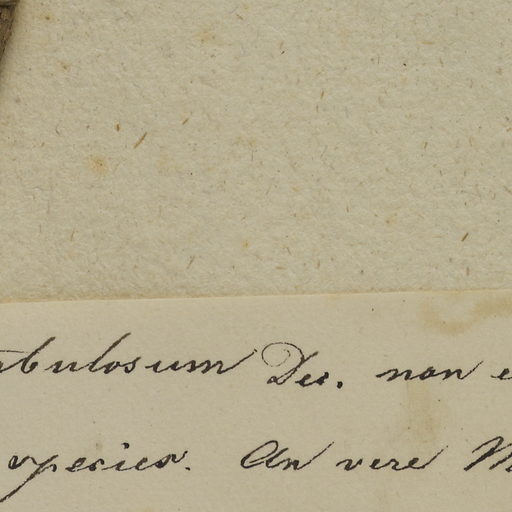 bulosum Dec. non e
species. An vere M